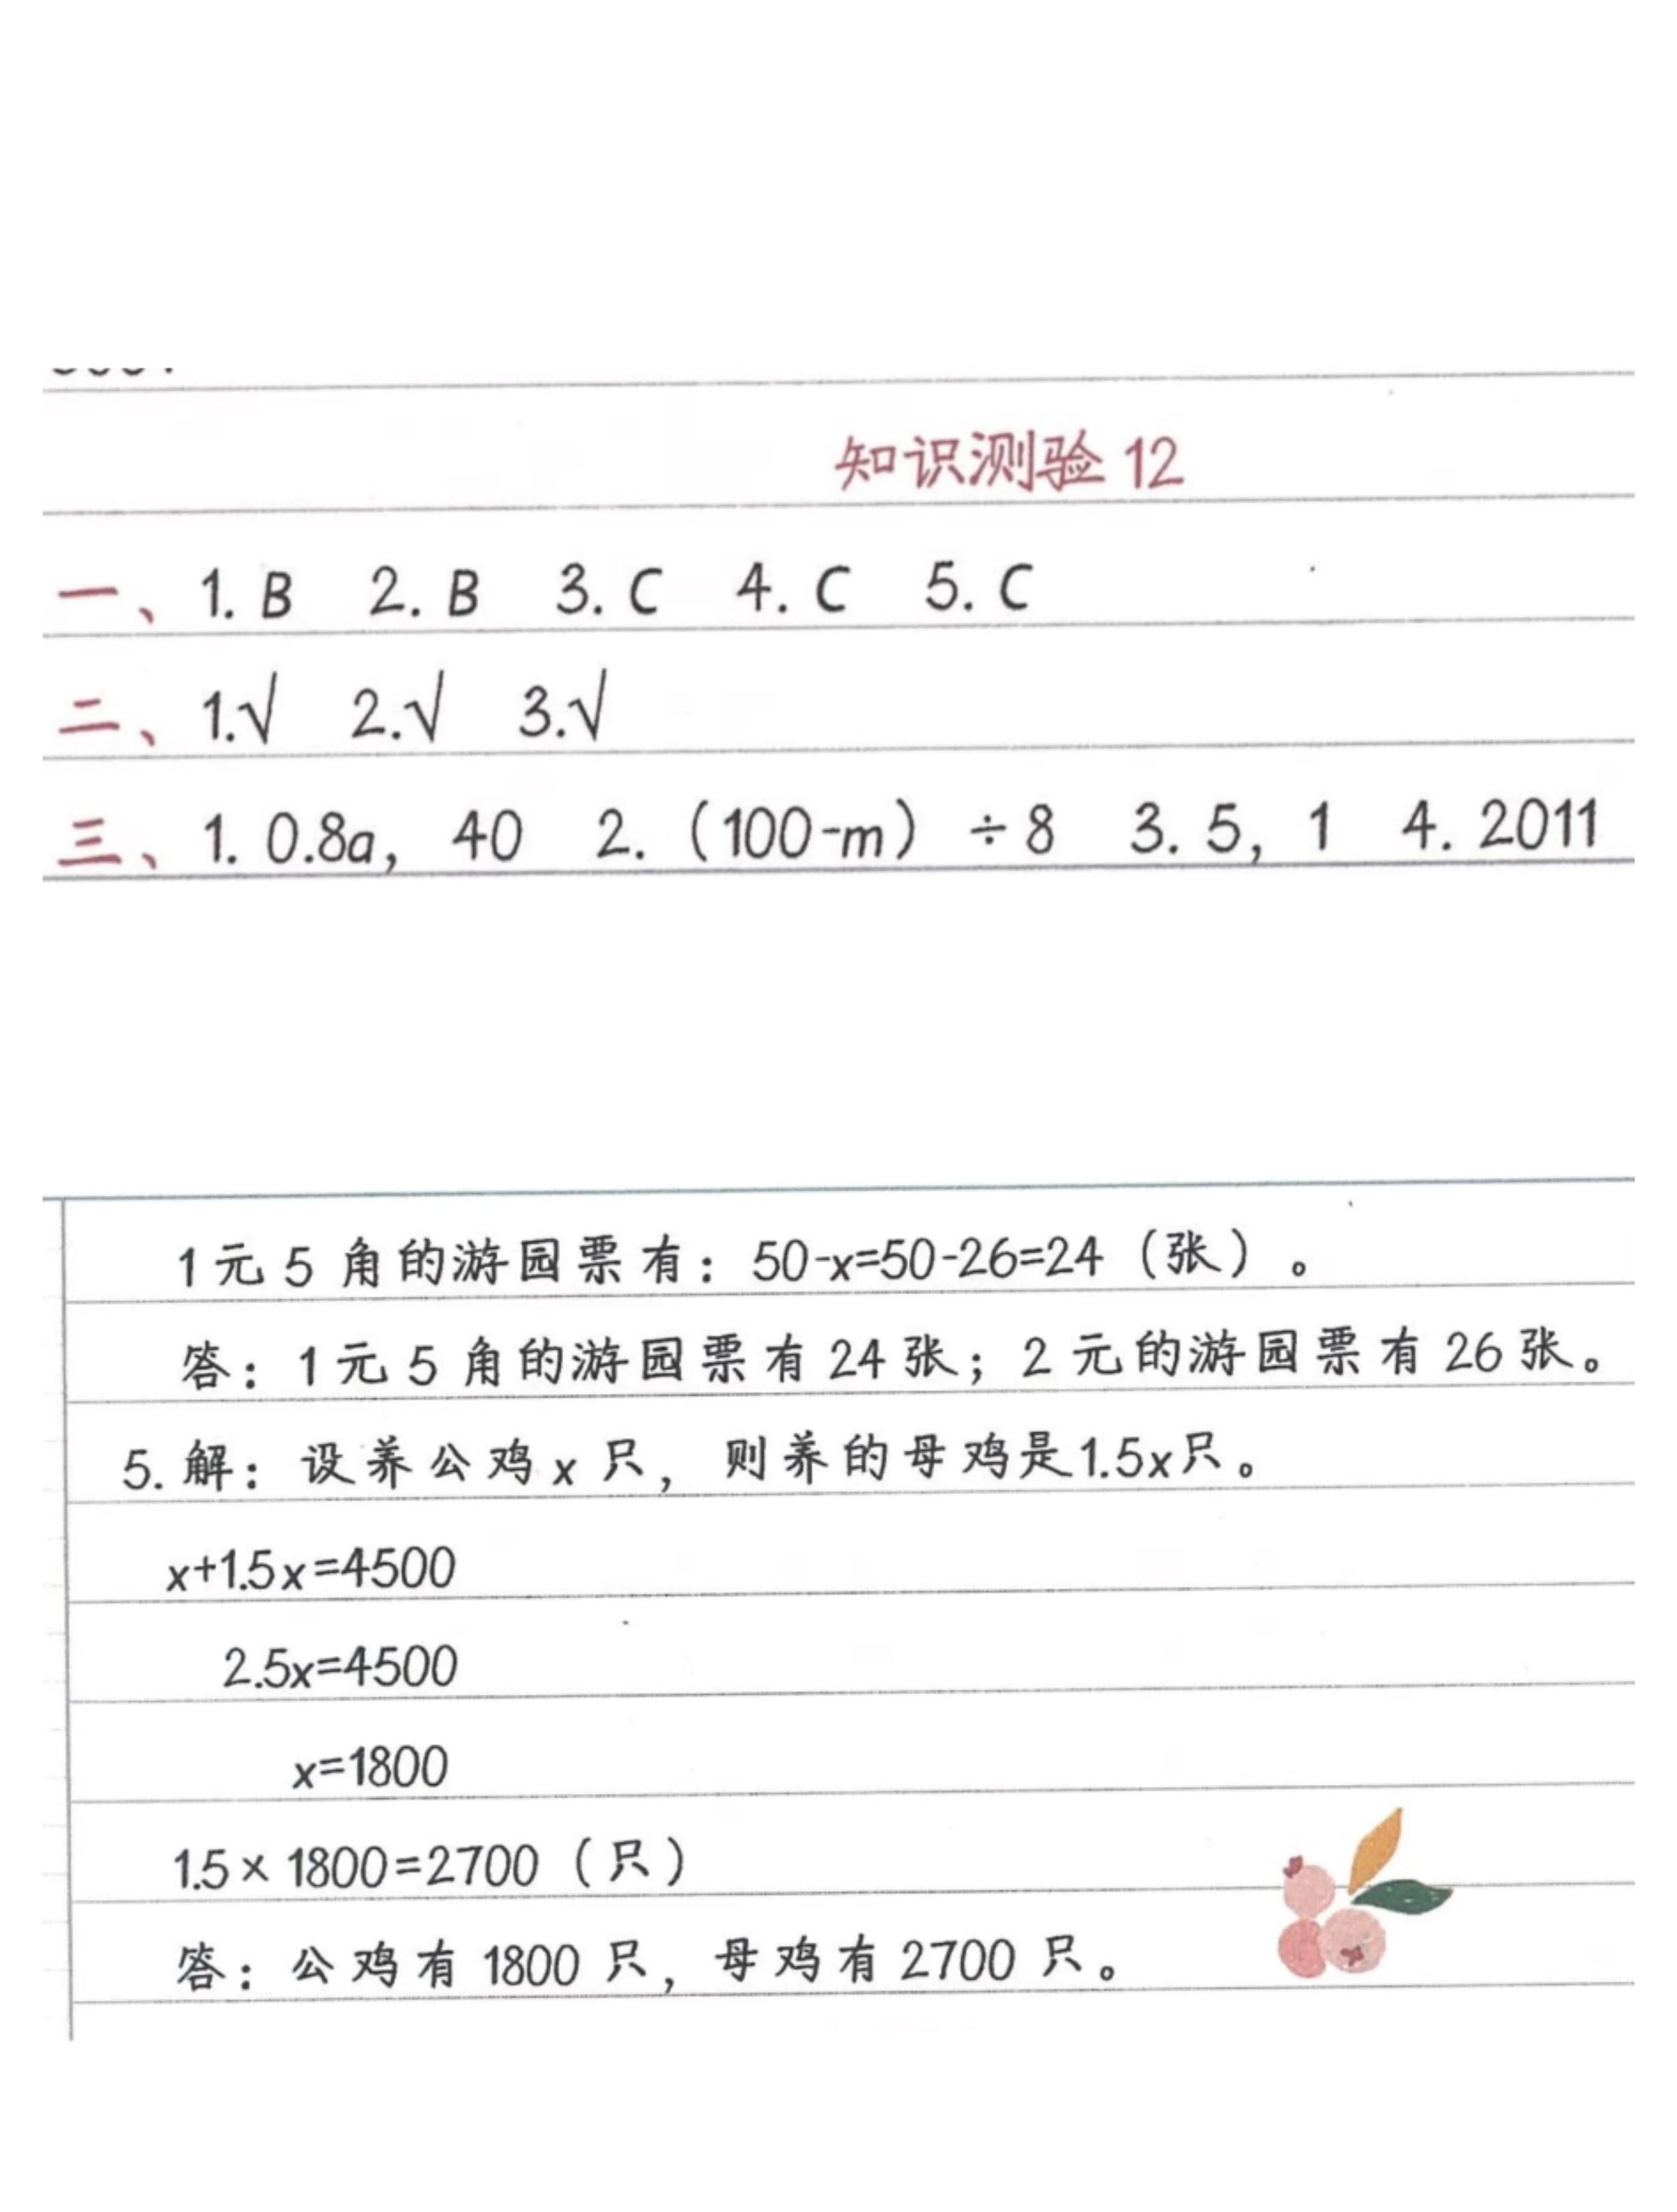 知识测验 12
一、1. B 2. B 3. C 4. C 5. C
二、1.√ 2.√ 3.√
三、1. 0.8a, 40 2.（100-m）÷8 3. 5, 1 4. 2011
1元5角的游园票有：50-x=50-26=24（张）。
答：1元5角的游园票有24张；2元的游园票有26张。
5. 解：设养公鸡x只，则养的母鸡是1.5x只。
x+1.5x=4500
2.5x=4500
x=1800
1.5×1800=2700（只）
答：公鸡有1800只，母鸡有2700只。